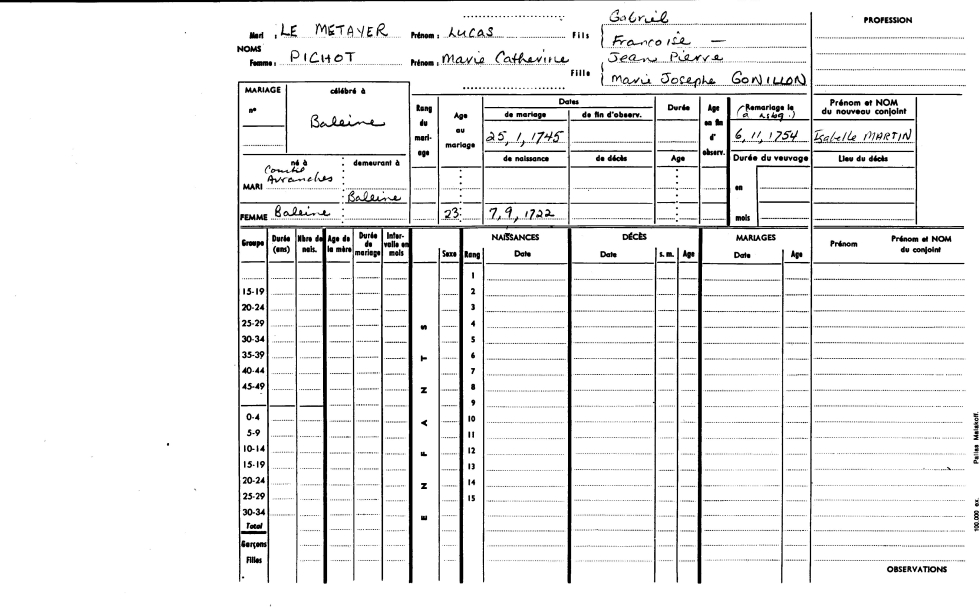 Mari : LE METAYER Prénom : LUCAS Fils Gabriel PROFESSION
Françoise —
NOMS
Femme : PICHOT Prénom : Marie Catherine Fille Jean Pierre
Marie Josephe GONILLON
MARIAGE célébré à Rang du mari- age Age au mariage Dates Durée Age en fin d' observ. (Remariage le Prénom et NOM du nouveau conjoint
n° de mariage de fin d'observ.
Baleine 25, 1, 1745 6, 11, 1754 Isabelle MARTIN
de naissance de décès Age Durée du veuvage Lieu du décès
né à demeurant à
Comté
MARI Avranches Baleine en
FEMME Baleine 23 7, 9, 1722 mois
Groupe Durée (ans) Nbre de nais. Age de la mère Durée de mariage Inter- valle en mois ENFANTS Sexe Rang NAISSANCES DÉCÈS MARIAGES Prénom Prénom et NOM du conjoint
Date Date s. m. Age Date Age
1
15-19 2
20-24 3
25-29 4
30-34 5
35-39 6
40-44 7
45-49 8
9
0-4 10
5-9 11
10-14 12
15-19 13
20-24 14
25-29 15
30-34
Total
Garçons
Filles
OBSERVATIONS
100.000 ex. Pallas Malakoff.